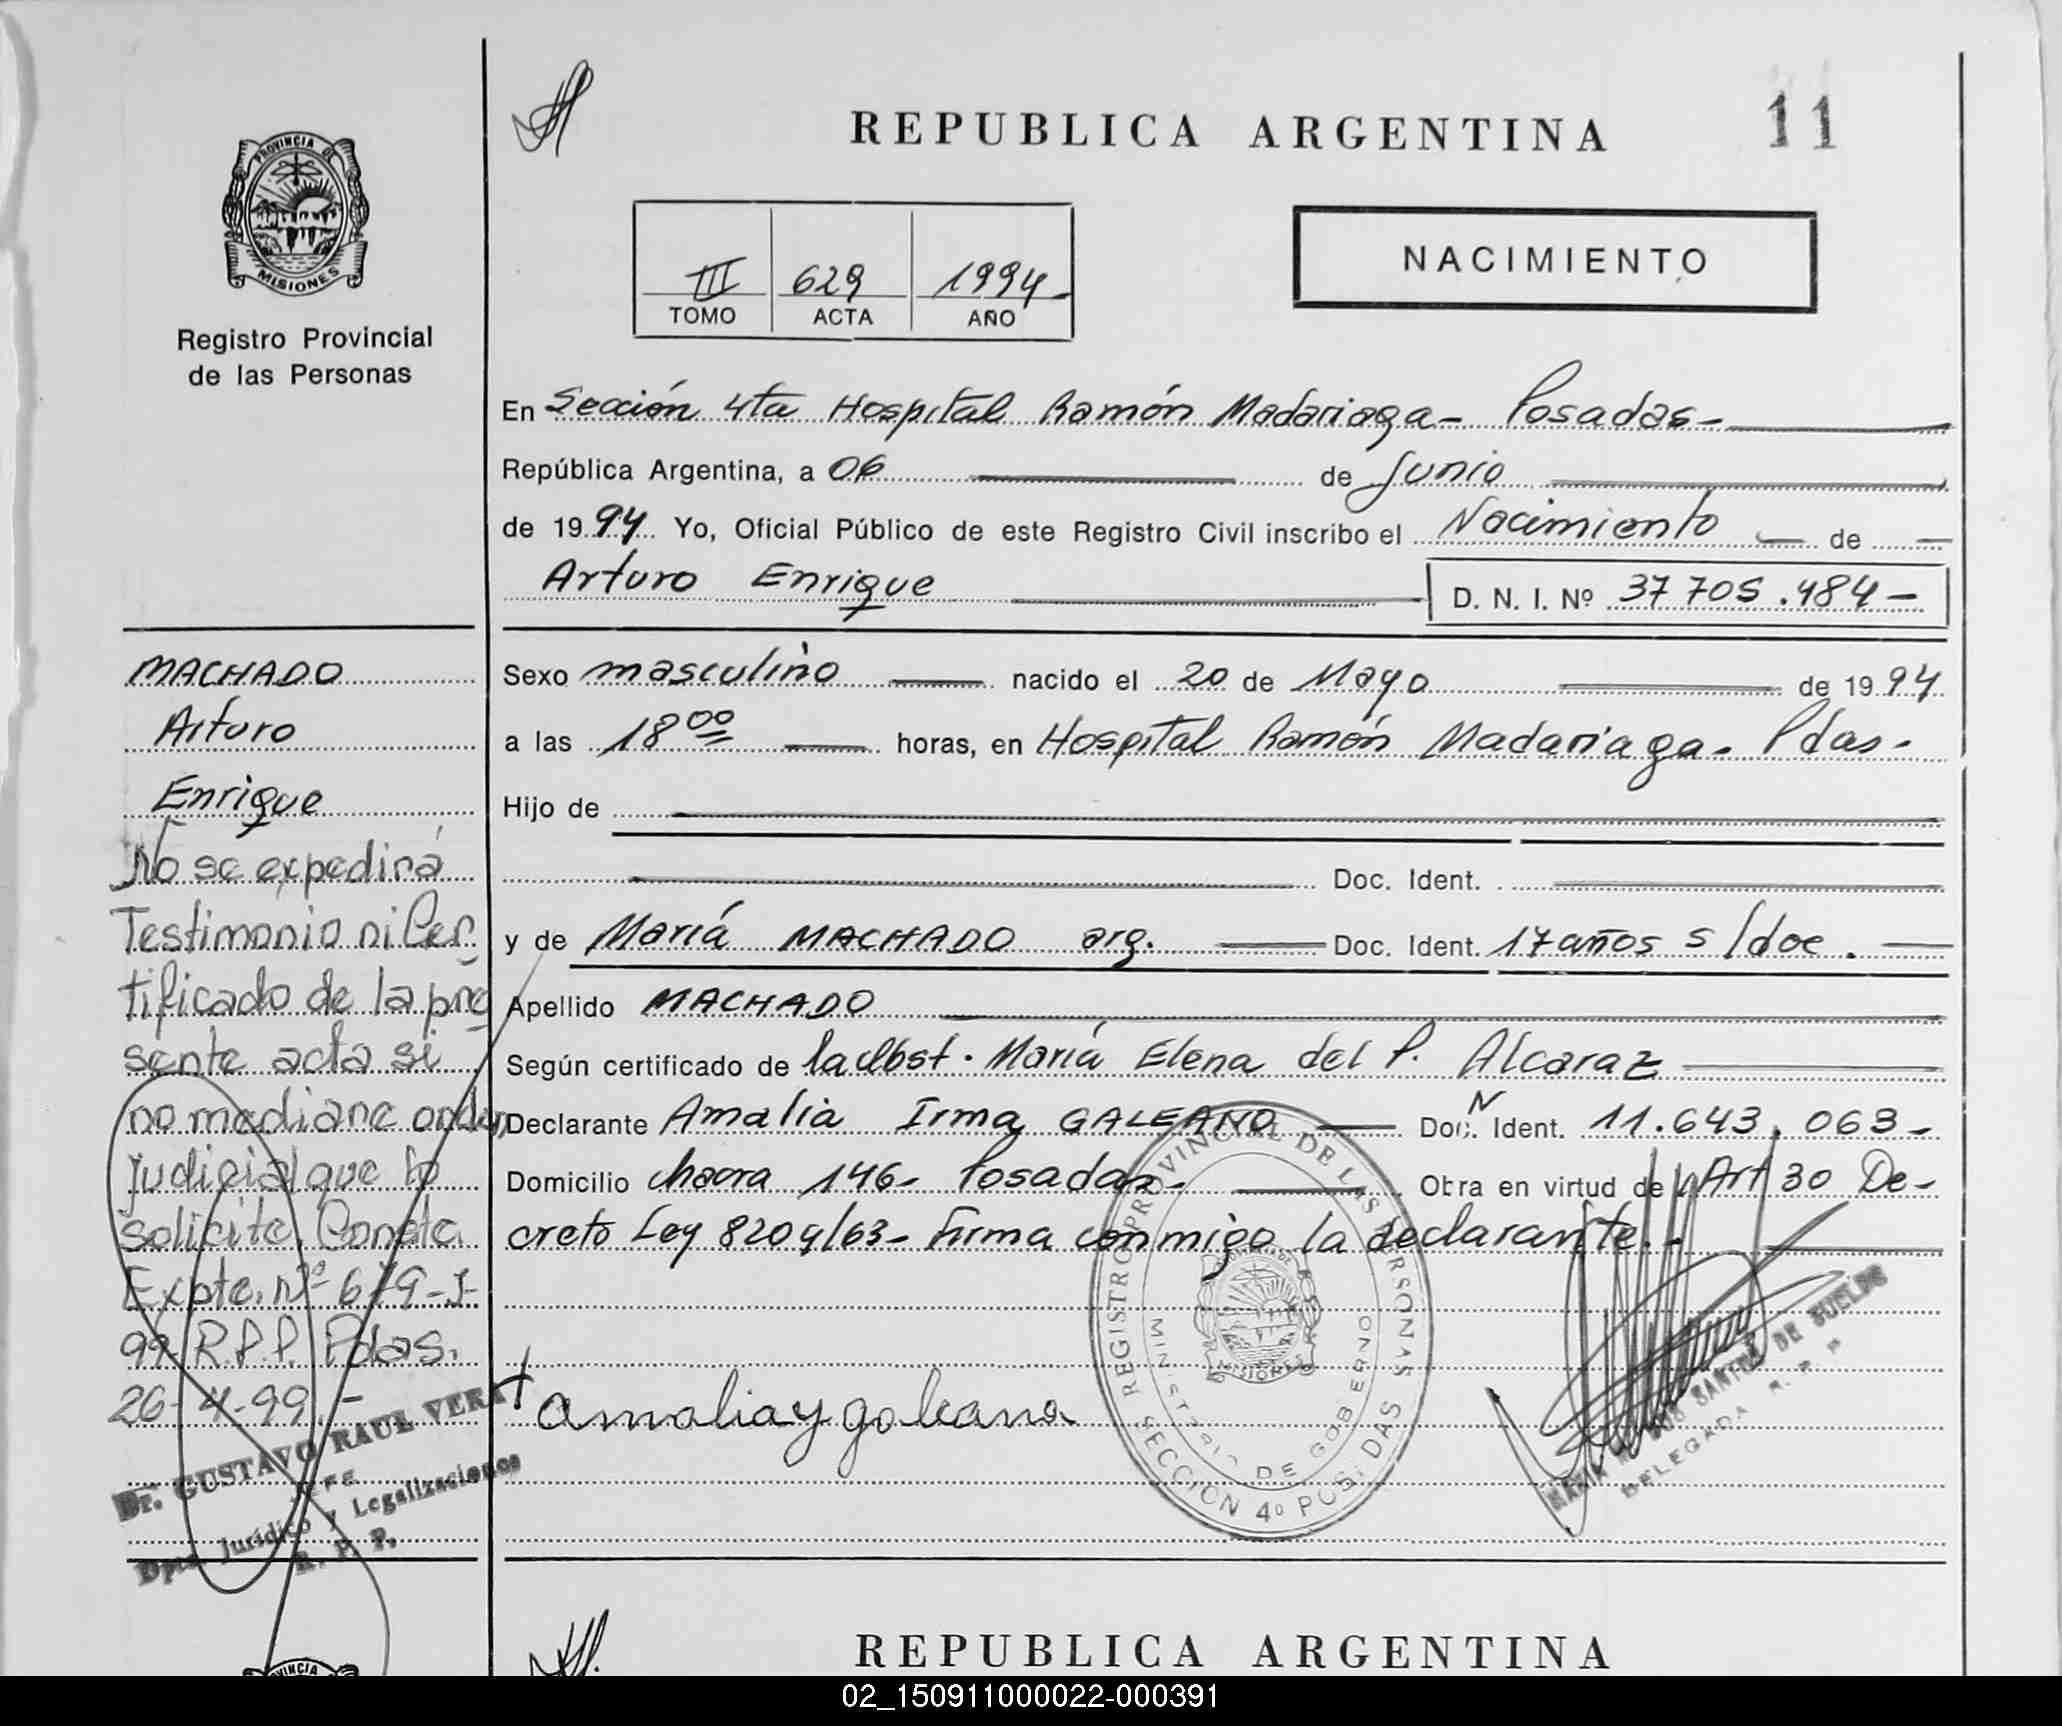 REPUBLICA ARGENTINA
11
PROVINCIA DE
MISIONES
Registro Provincial
de las Personas
III 629 1994-
TOMO ACTA AÑO
NACIMIENTO
En Sección 4ta Hospital Ramón Madariaga- Posadas-
República Argentina, a 06 de Junio
de 1994 Yo, Oficial Público de este Registro Civil inscribo el Nacimiento de
Arturo Enrique D. N. I. Nº 37 705.484-
MACHADO
Arturo
Enrique
No se expedirá
Testimonio ni Cer
tificado de la pre
sente acta si
no mediane orden
judicial que lo
solicite. Consta
Expte. nº 679-J-
99 R.P.P. Pdas.
26-4-99.-
Dr. GUSTAVO RAUL VERA
JEFE
Dpto. Jurídico y Legalizaciones
R. P. P.
Sexo masculino nacido el 20 de Mayo de 1994
a las 18 00 horas, en Hospital Ramón Madariaga- Pdas-
Hijo de
Doc. Ident.
y de María MACHADO arg. Doc. Ident. 17 años s/doc.
Apellido MACHADO
Según certificado de la Obst. María Elena del P. Alcaraz
Declarante Amalia Irma GALEANO Doc. N Ident. 11.643.063-
Domicilio Chacra 146- Posadas- Obra en virtud de Art 30 De-
creto Ley 8204/63- Firma conmigo la declarante.-
amalia y galeano
REGISTRO PROVINCIAL DE LAS PERSONAS
MINISTERIO DE GOBIERNO
MISIONES
SECCION 4º POSADAS
DE SUELDO
DELEGADA
R. P. P.
REPUBLICA ARGENTINA
02_150911000022-000391